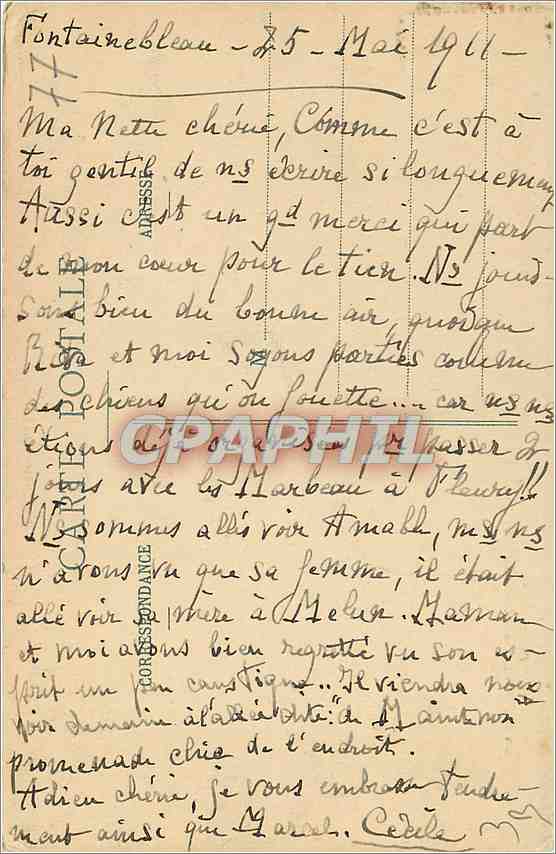 Fontainebleau - 25 - Mai 1911 -
77
Ma Nette chérie, Comme c'est à
toi gentil de ns écrire si longuement
Aussi c'est un gd merci qui part
de mon cœur pour le tien. Ns jouis-
sons bien du bonne air, quoique
et moi soyons parties comme
des chiens qu'on fouette.... car ns ns
étions déjà organisées pr passer 2
jours avec les Marbeau à Fleury!!
Ns sommes allés voir Amable, ms ns
n'avons vu que sa femme, il était
allé voir sa mère à Melun. Maman
et moi avons bien regretté vu son es-
prit un peu caustique.. Il viendra nous
voir demain à l'allée dite "de Maintenon"
promenade chic de l'endroit.
Adieu chérie, je vous embrasse tendre-
ment ainsi que Marcel. Cécile
CARTE POSTALE
ADRESSE
CORRESPONDANCE
M
CPAPHIL